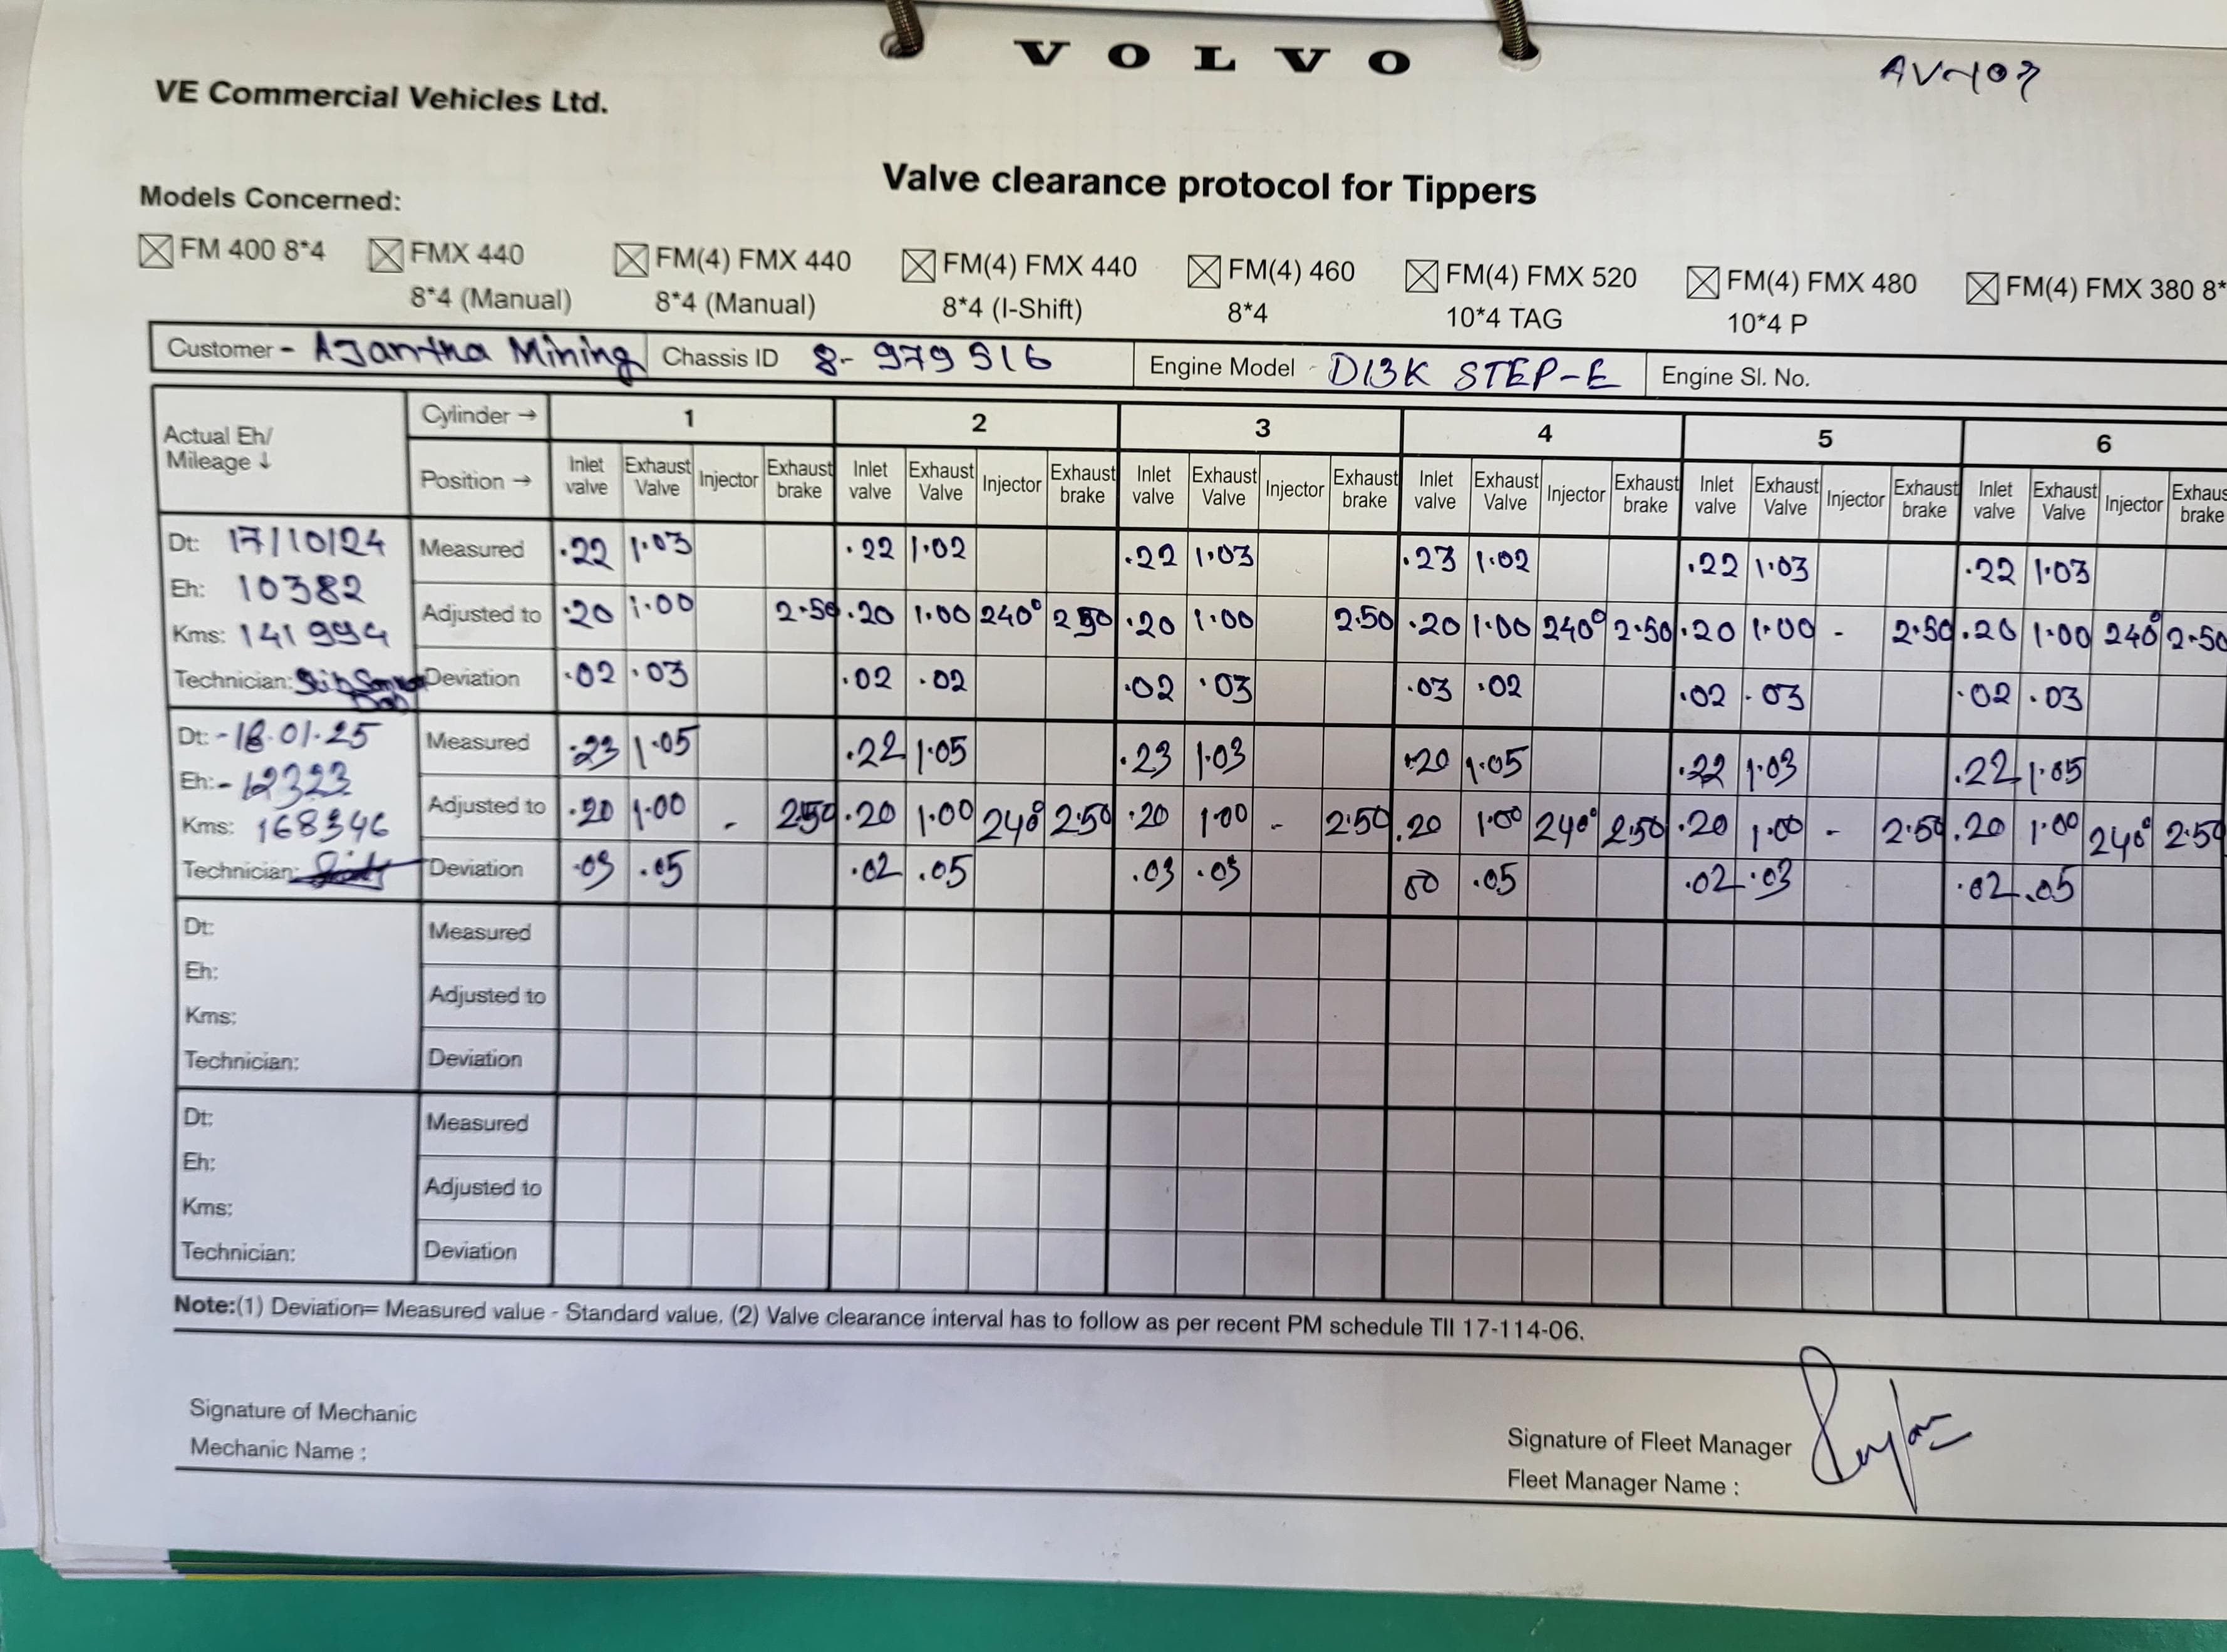 VOLVO
AV-107
VE Commercial Vehicles Ltd.
Valve clearance protocol for Tippers
Models Concerned:
FM 400 8*4 FMX 440 FM(4) FMX 440 FM(4) FMX 440 FM(4) 460 FM(4) FMX 520 FM(4) FMX 480 FM(4) FMX 380 8*
8*4 (Manual) 8*4 (Manual) 8*4 (I-Shift) 8*4 10*4 TAG 10*4 P
Customer - AJantha Mining Chassis ID 8-979516 Engine Model - D13K STEP-E Engine Sl. No.
Actual Eh/ Mileage ↓ Cylinder → 1 2 3 4 5 6
Position → Inlet valve Exhaust Valve Injector Exhaust brake Inlet valve Exhaust Valve Injector Exhaust brake Inlet valve Exhaust Valve Injector Exhaust brake Inlet valve Exhaust Valve Injector Exhaust brake Inlet valve Exhaust Valve Injector Exhaust brake Inlet valve Exhaust Valve Injector Exhaus brake
Dt: 17/10/24 Measured .22 1.03 .22 1.02 .22 1.03 .23 1.02 .22 1.03 .22 1.03
Eh: 10382
Kms: 141994 Adjusted to .20 1.00 2.50 .20 1.00 240° 2.50 .20 1.00 2.50 .20 1.00 240° 2.50 .20 1.00 - 2.50 .20 1.00 240° 2.50
Technician: Deviation .02 .03 .02 .02 .02 .03 .03 .02 .02 .03 .02 .03
Dt: -18.01.25 Measured .23 1.05 .22 1.05 .23 1.03 .20 1.05 .22 1.03 .22 1.05
Eh: - 12323
Kms: 168346 Adjusted to .20 1.00 - 2.50 .20 1.00 240° 2.50 .20 1.00 - 2.50 .20 1.00 240° 2.50 .20 1.00 - 2.50 .20 1.00 240° 2.50
Technician: Deviation .03 .05 .02 .05 .03 .03 00 .05 .02 .03 .02 .05
Dt: Measured
Eh:
Kms: Adjusted to
Technician: Deviation
Dt: Measured
Eh:
Kms: Adjusted to
Technician: Deviation
Note:(1) Deviation= Measured value - Standard value, (2) Valve clearance interval has to follow as per recent PM schedule TII 17-114-06.
Signature of Mechanic
Mechanic Name :
Signature of Fleet Manager
Fleet Manager Name :